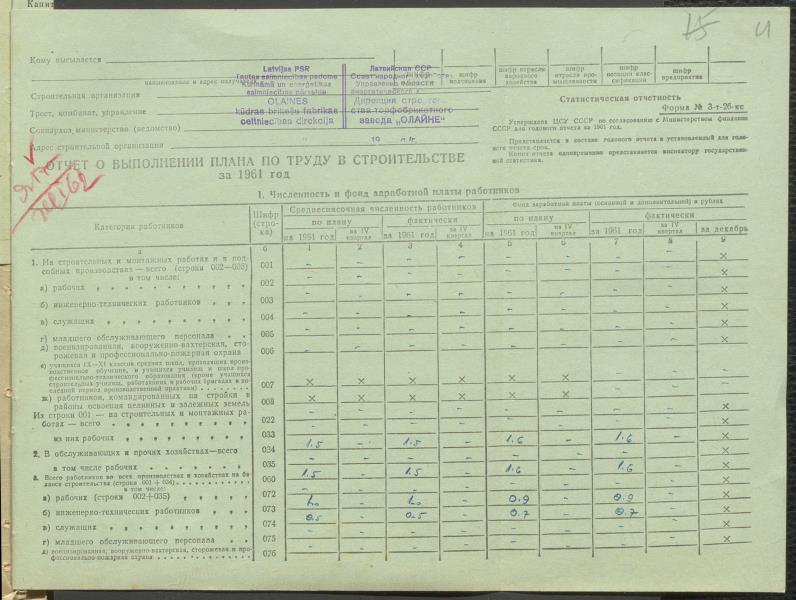 Капит
75 4
Кому высылается
наименование и адрес получателя
Latvijas PSR
Tautas saimniecības padome
Kurināmā un enerģētikas
saimniecības pārvalde
OLAINES
kūdras briketu fabrikas
celtniecības direkcija
Латвийская ССР
Совет народного
Управление
Дирекция
завода „ОЛАЙНЕ"
шифр отрасли народного хозяйства
шифр отрасли промышленности
шифр
шифр предприятия
Строительная организация
Трест, комбинат, управление
Совнархоз, министерство (ведомство)
Адрес строительной организации
Статистическая отчетность
Форма № 3-т-26-кс
Утверждена ЦСУ СССР по согласованию с Министерством финансов
СССР для годового отчета за 1961 год.
Представляется в составе годового отчета в установленный для годового отчета срок.
Копия отчета одновременно представляется инспектору государственной статистики.
ОТЧЕТ О ВЫПОЛНЕНИИ ПЛАНА ПО ТРУДУ В СТРОИТЕЛЬСТВЕ
за 1961 год
I. Численность и фонд заработной платы работников
Категории работников
Шифр (строка)
Среднесписочная численность работников
Фонд заработной платы (основной и дополнительной) в рублях
по плану фактически по плану фактически
на 1961 год за IV квартал за 1961 год за IV квартал на 1961 год за IV квартал за 1961 год за IV квартал за декабрь
б 1 2 3 4 5 6 7 8 9
1. На строительных и монтажных работах и в подсобных производствах — всего (строки 002—008) 001 – – – – – – – – ×
в том числе:
а) рабочих 002 – – – – – – – – ×
б) инженерно-технических работников 003 – – – – – – – – ×
в) служащих 004 – – – – – – – – ×
г) младшего обслуживающего персонала 005 – – – – – – – – ×
д) военизированная, вооруженно-вахтерская, сторожевая и профессионально-пожарная охрана 006 – – – – – – – – ×
е) учащихся IX—XI классов средних школ, проходящих производственное обучение, и учащихся училищ и школ профессионально-технического образования (кроме учащихся строительных училищ, работающих в рабочих бригадах в последний период производственной практики) 007 × × × × × × – – –
ж) работников, командированных на стройки в районы освоения целинных и залежных земель 008 × × × × × × – – –
Из строки 001 — на строительных и монтажных работах — всего 022 – – – – – – – – ×
из них рабочих 033 – – – – – – – – ×
2. В обслуживающих и прочих хозяйствах—всего 034 1.5 – 1.5 – 1.6 – 1.6 – ×
в том числе рабочих 035 – – – – – – – – ×
3. Всего работников во всех производствах и хозяйствах на балансе строительства (строки 001 + 034) 060 1.5 – 1.5 – 1.6 – 1.6 – ×
в том числе:
а) рабочих (строки 002+035) 072 1.0 – 1.0 – 0.9 – 0.9 – ×
б) инженерно-технических работников 073 0.5 – 0.5 – 0.7 – 0.7 – ×
в) служащих 074 – – – – – – – – ×
г) младшего обслуживающего персонала 075 – – – – – – – – ×
д) военизированная, вооруженно-вахтерская, сторожевая и профессионально-пожарная охрана 076 – – – – – – – – ×